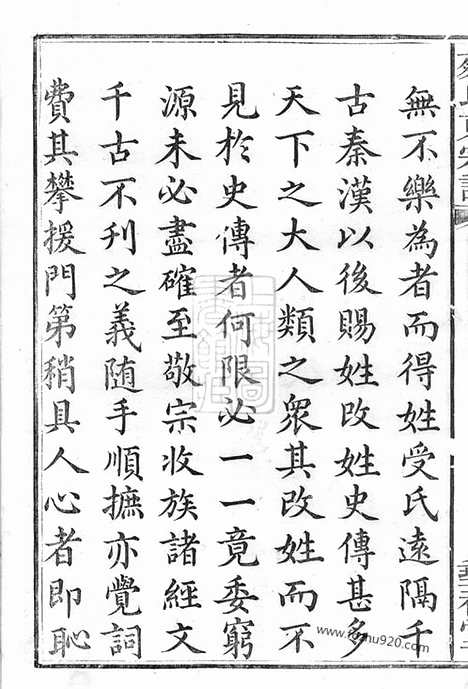 無不樂為者而得姓受氏遠隔千
古秦漢以後賜姓改姓史傳甚多
天下之大人類之衆其改姓而不
見於史傳者何限必一一竟委窮
源未必盡確至敬宗收族諸經文
千古不刋之義随手順摭亦覺詞
費其攀援門第稍具人心者即恥